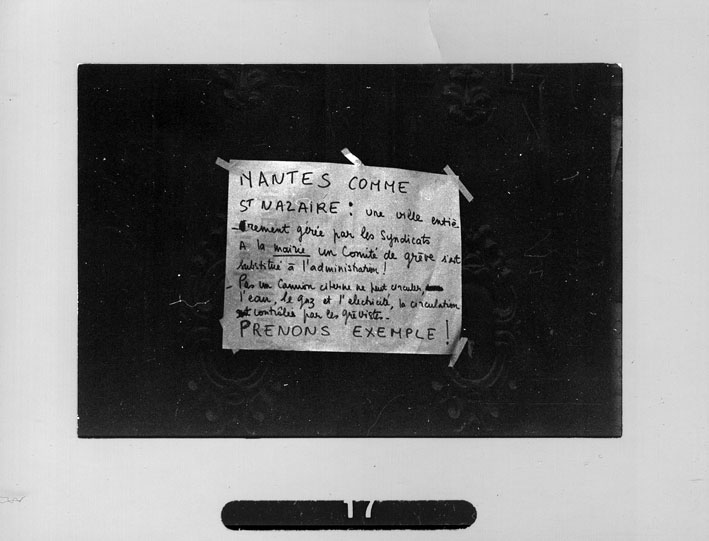 NANTES COMME
ST NAZAIRE : une ville entiè
-rement gérée par les Syndicats
A la mairie un Comité de grève s'est
substitué à l'administration !
- Pas un Camion citerne ne peut circuler,
l'eau, le gaz et l'electricité, la circulation
est contrôlée par les grévistes -
PRENONS EXEMPLE !
17